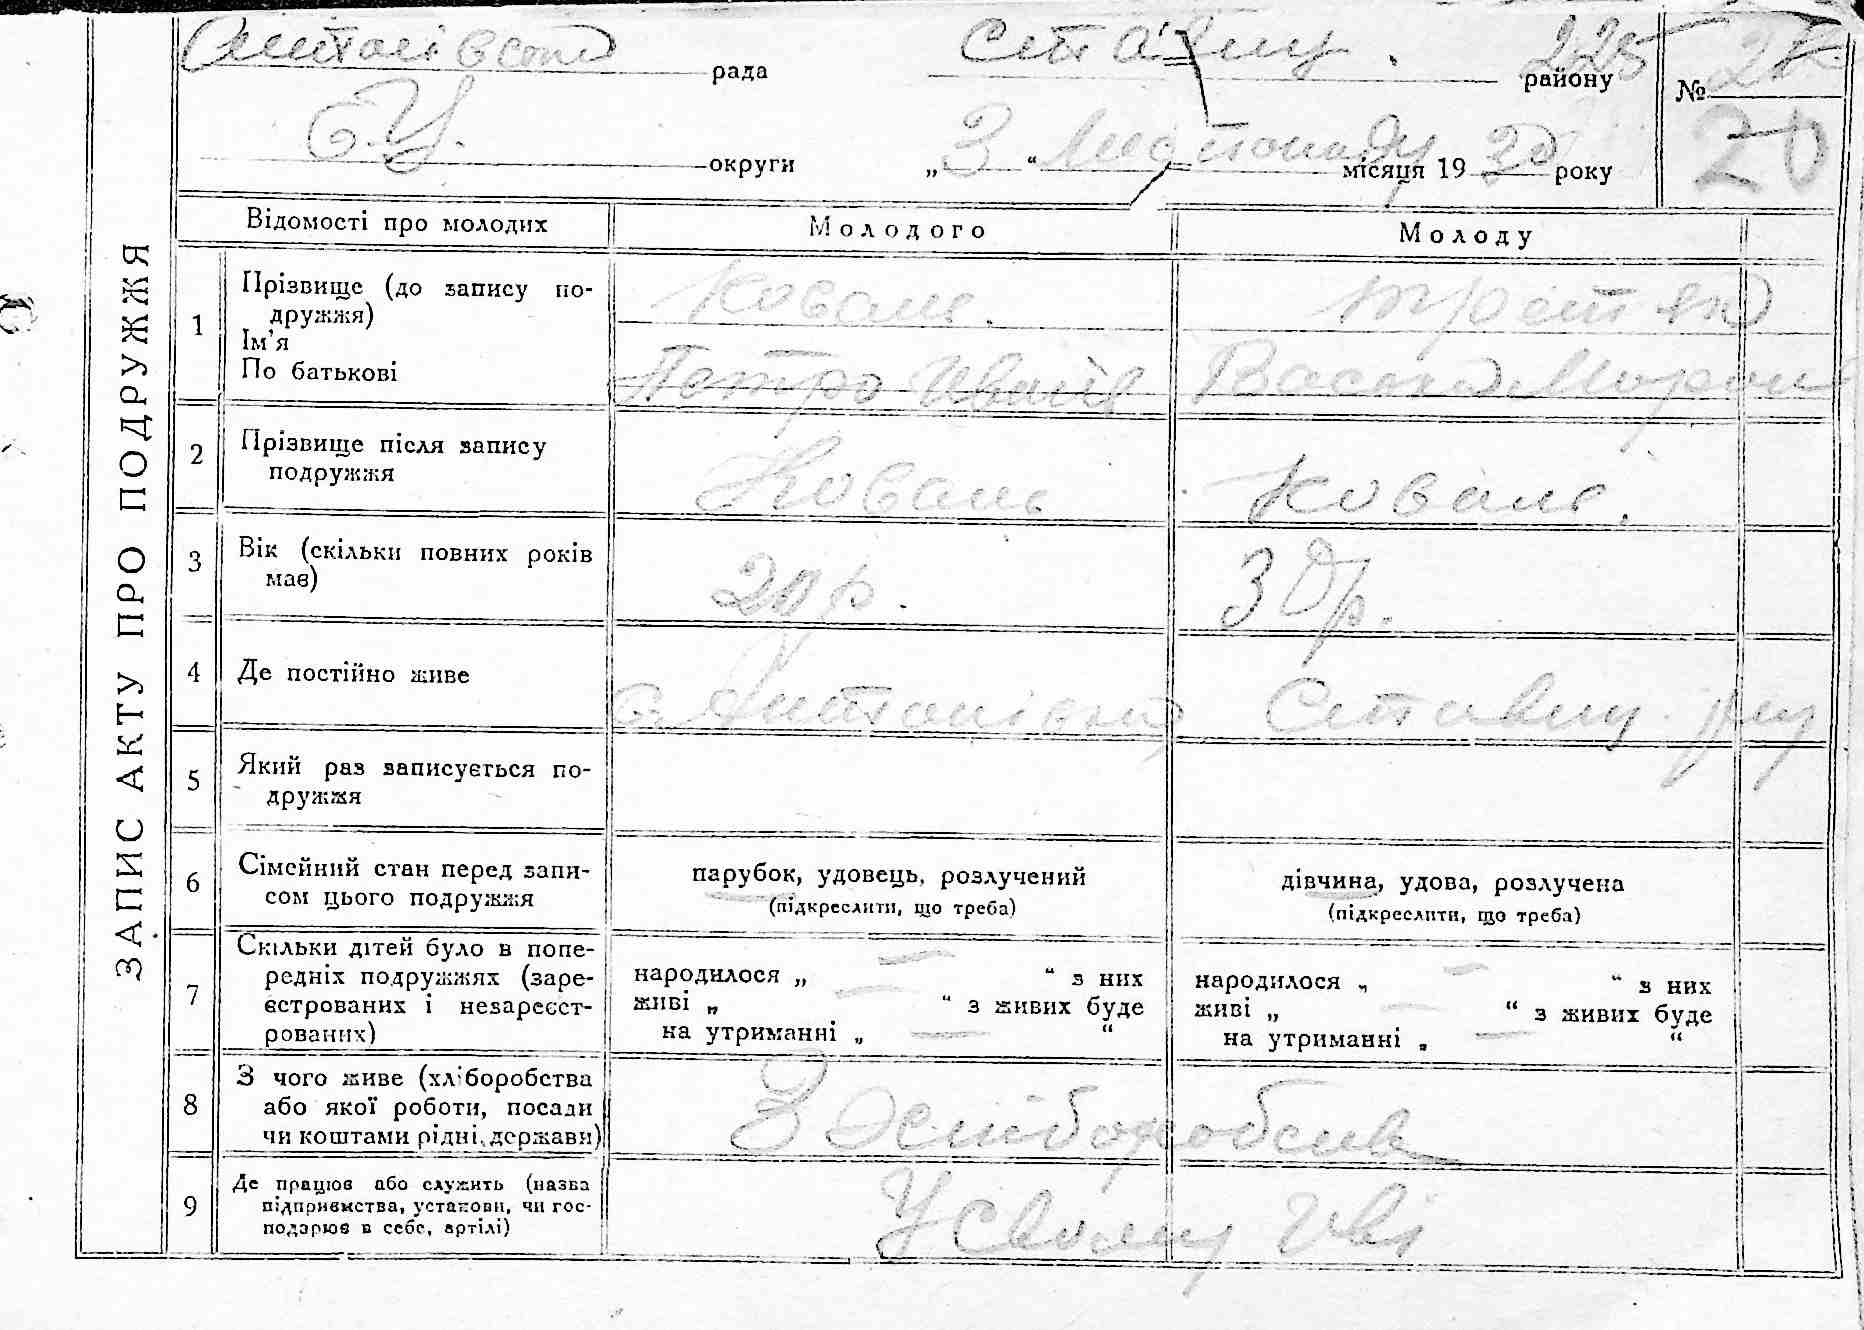 ЗАПИС АКТУ ПРО ПОДРУЖЖЯ
Антонівська рада Ставищ. району № 22
225
Б.Ц. округи „3“ Листопаду місяця 1930 року 20
Відомості про молодих Молодого Молоду
1 Прізвище (до запису по-
дружжя)
Ім’я
По батькові
Коваль. Третяк
Петро Иванів
2 Прізвище після запису
подружжя
Коваль Коваль.
3 Вік (скільки повних років
має)
20 р. 30 р.
4 Де постійно живе
с. Антонівка Ставищ. р-ну
5 Який раз записується по-
дружжя
6 Сімейний стан перед запи-
сом цього подружжя
парубок, удовець, розлучений
(підкреслити, що треба)
дівчина, удова, розлучена
(підкреслити, що треба)
7 Скільки дітей було в попе-
редніх подружжях (заре-
єстрованих і незареєст-
рованих)
народилося „ — “ з них
живі „ — “ з живих буде
на утриманні „ — “
народилося „ — “ з них
живі „ — “ з живих буде
на утриманні „ — “
8 З чого живе (хліборобства
або якої роботи, посади
чи коштами рідні, держави)
З хліборобсив
9 Де працює або служить (назва
підприємства, установи, чи гос-
подарює в себе, артілі)
У своему